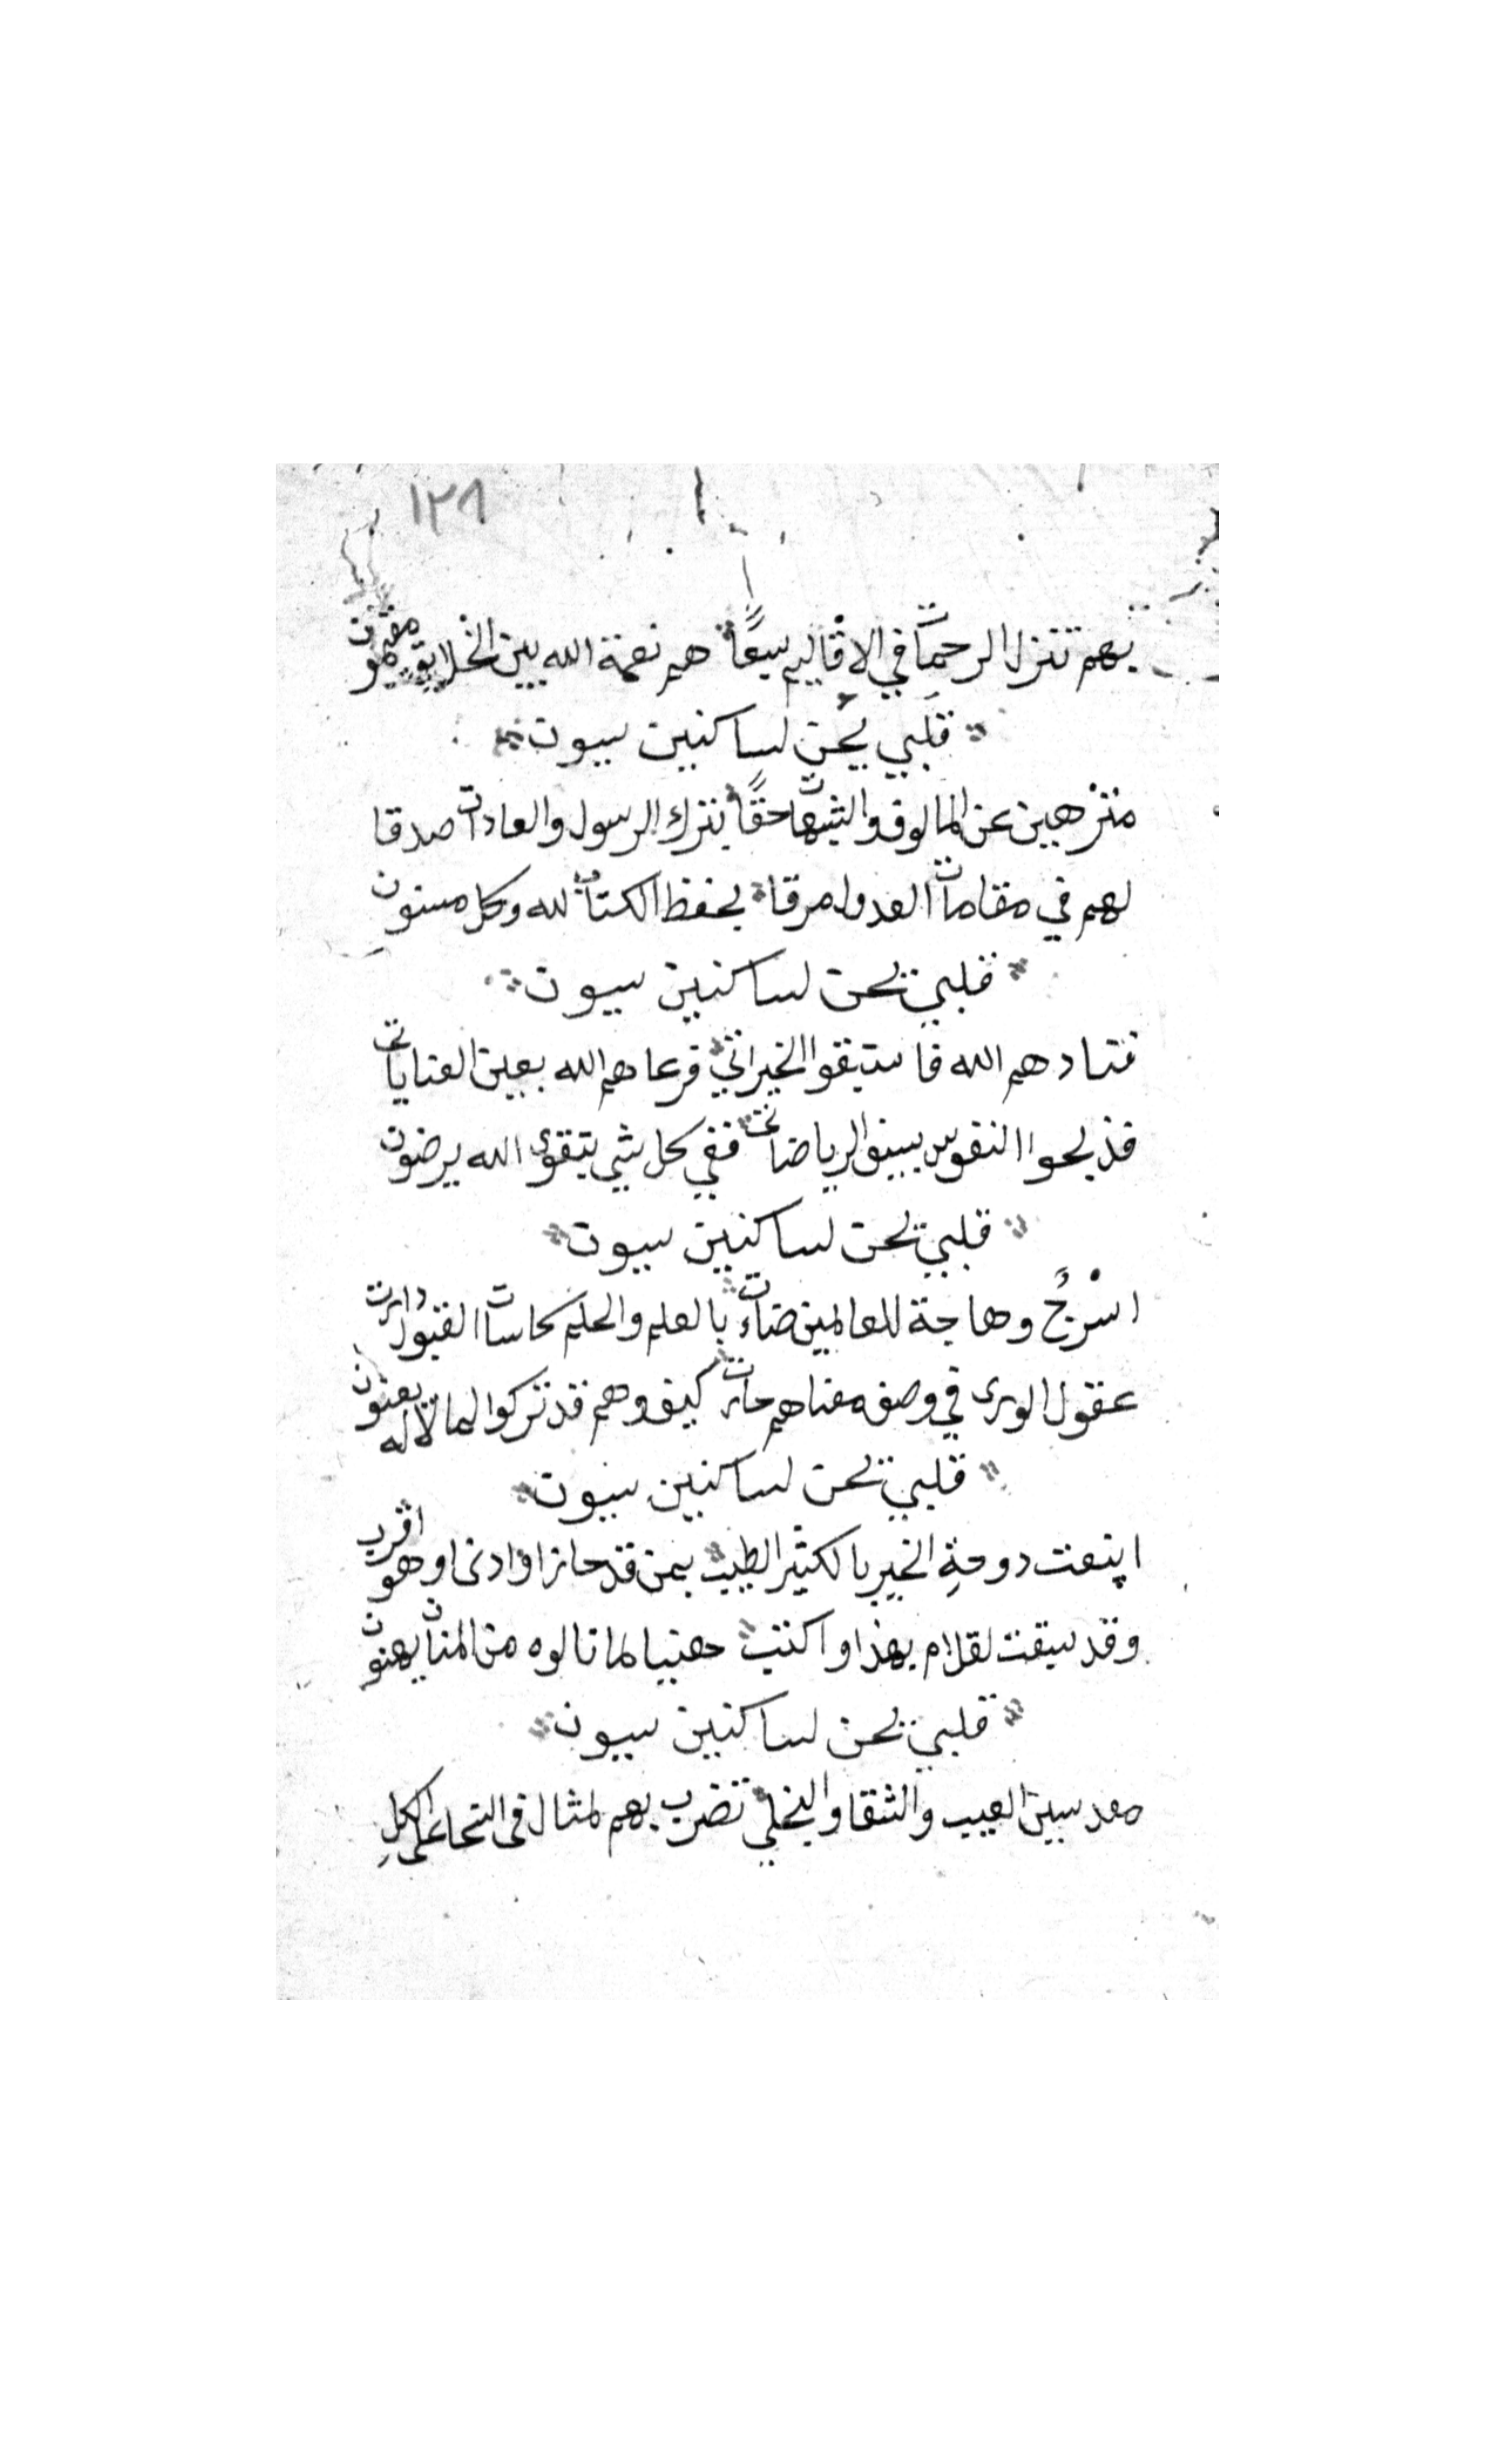 ١٢٨
بهم تنزل الرحمات في الاقاليم سبعًا هم نعمة الله بين الخلايق مقيمون
قلبي يحن لساكنين سيون
منزهين عن المالوف والشبهات حقًا بترك الرسول والعادات صدقا
لهم في مقامات العدول مرقا بحفظ الكتاب لله وكل مسنون
قلبي يحن لساكنين سيون
فنادهم الله فاستبقوا الخيرات فرعاهم الله بعين العنايات
فذبحوا النفوس بسيوف الرياضات ففي كل شي بتقوى الله يرضون
قلبي يحن لساكنين سيون
اسْرجٌ وهاجة للعالمين ضاءت بالعلم والحلم كاسات القبول دارت
عقول الورى في وصف معناهم حارت كيف وهم قد تركوا لما لاله يعنون
قلبي يحن لساكنين سيون
اينعت دوحةِ الخير بالكثير الطيب بمن قد حاز اوادنى او هو اقرب
وقد سبقت لقلام بهذا واكتب هنيا لما نالوه من المنان يهنون
قلبي يحن لساكنين سيون
معد سين العيب والشقا والبخلي تضرب بهم لمثال في التحا على الكلِ